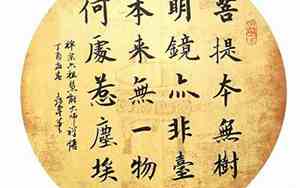 菩提本無樹
明鏡亦非臺
本来無一物
何處惹塵埃
禅宗六祖慧能大师詩偈
丁酉